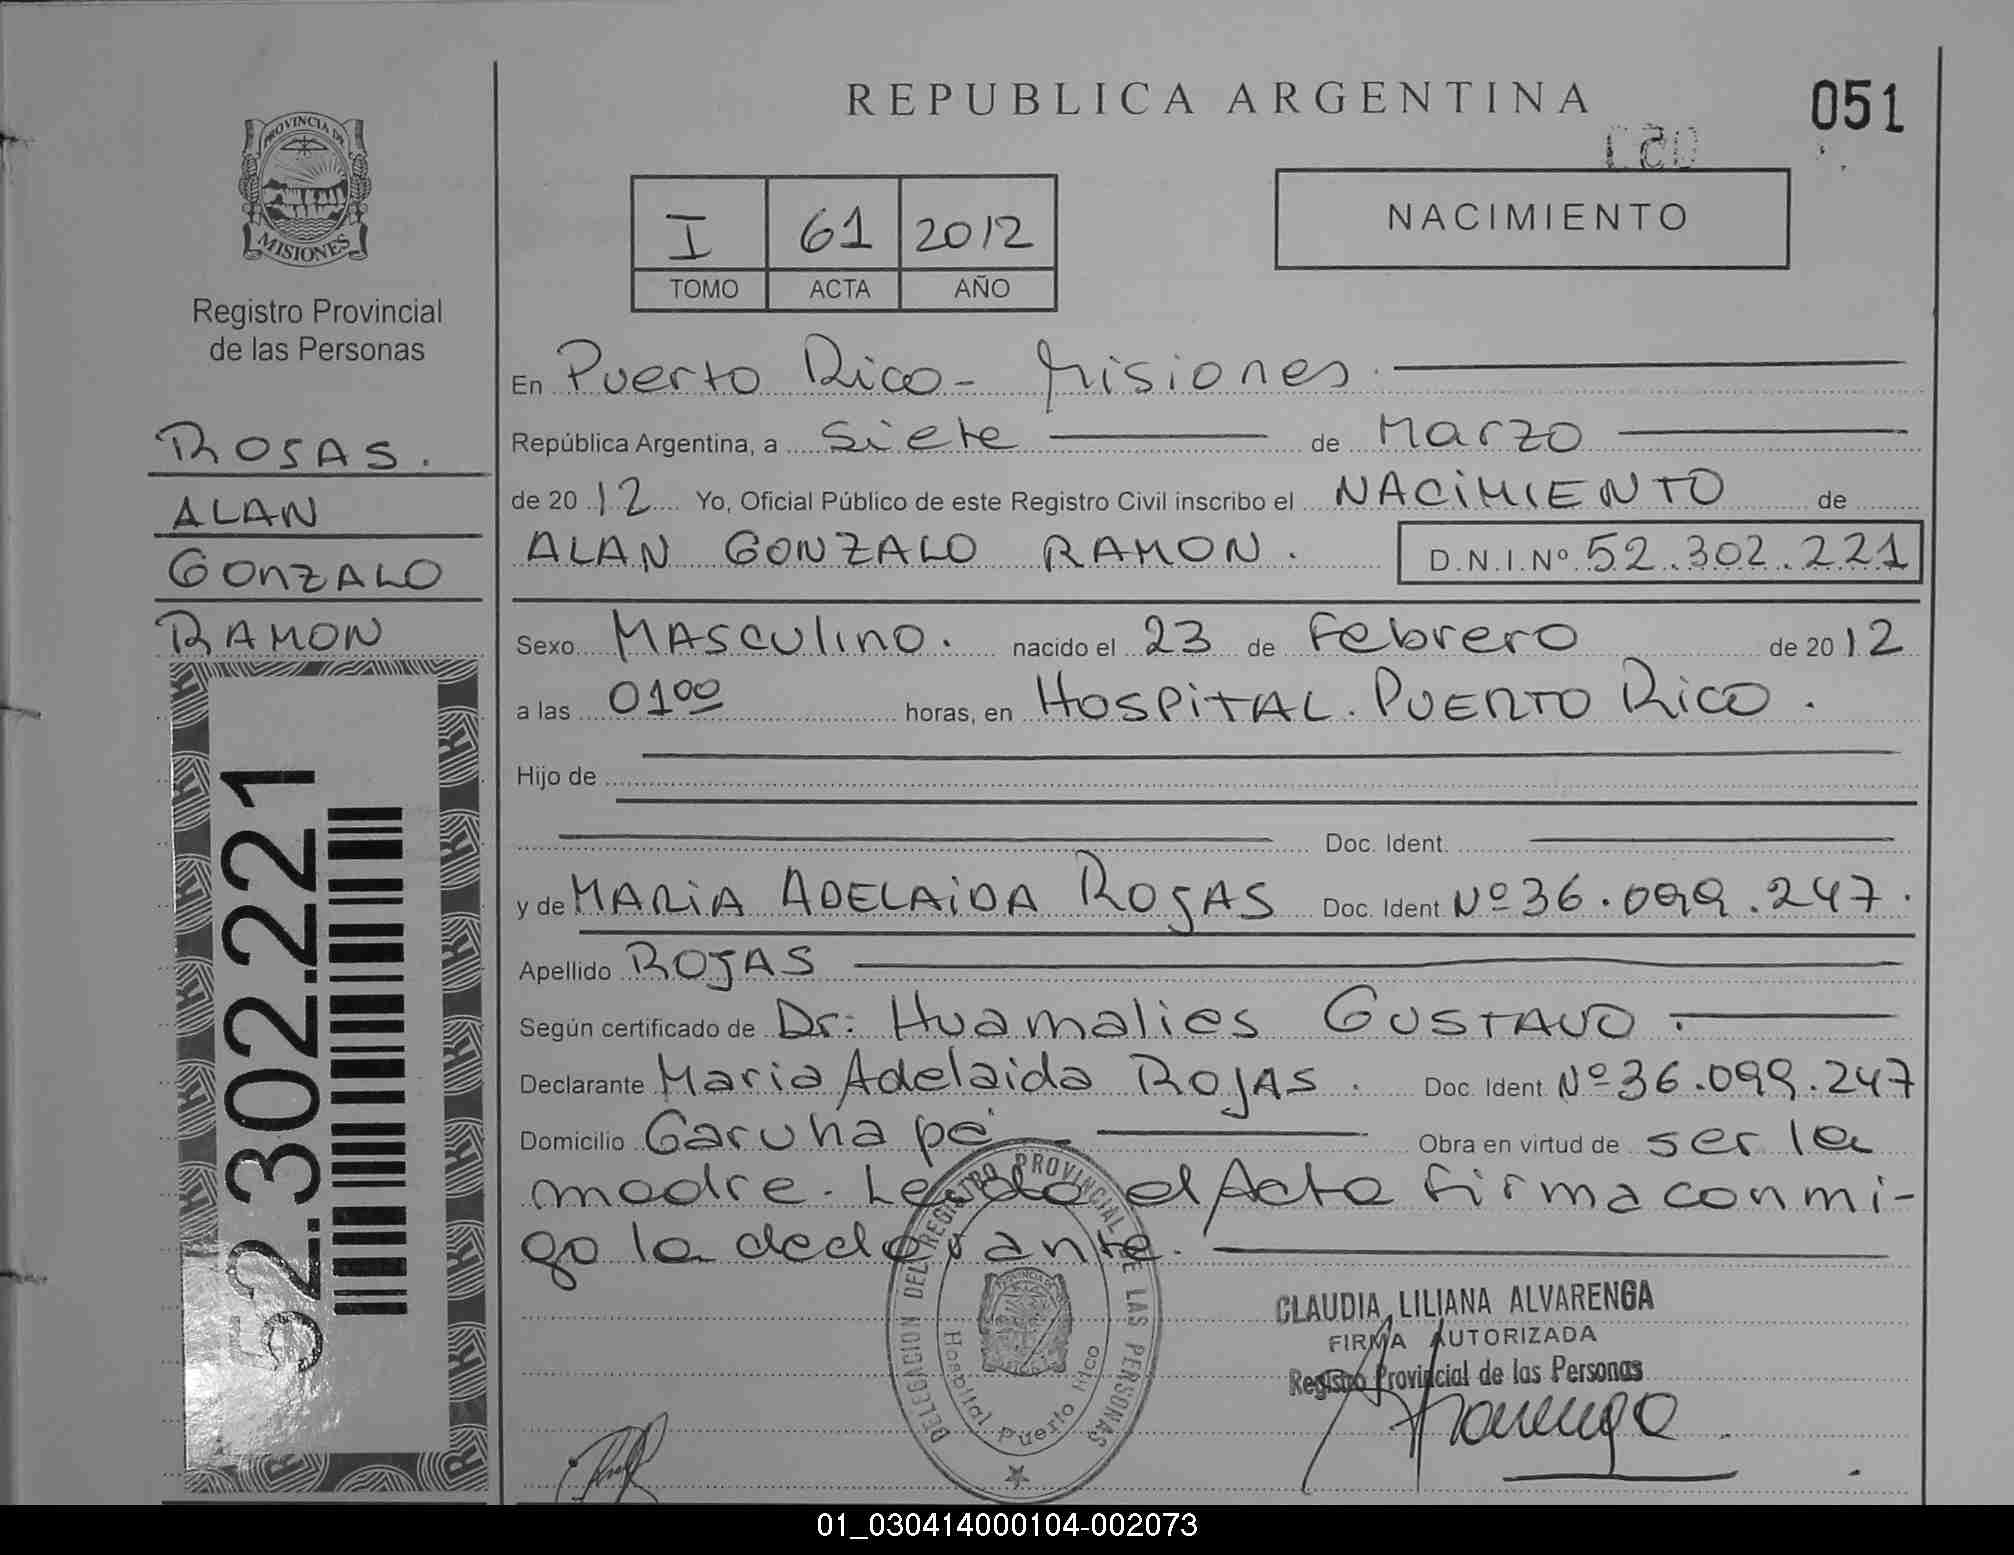 REPUBLICA ARGENTINA
051
PROVINCIA DE
MISIONES
Registro Provincial
de las Personas
I 61 2012
TOMO ACTA AÑO
NACIMIENTO
ROSAS.
ALAN
GONZALO
RAMON
52.302.221
En Puerto Rico - Misiones.
República Argentina, a Siete de Marzo
de 2012 Yo, Oficial Público de este Registro Civil inscribo el NACIMIENTO de
ALAN GONZALO RAMON. D.N.I.Nº 52.302.221
Sexo MASCULINO. nacido el 23 de Febrero de 2012
a las 01 00 horas, en HOSPITAL. PUERTO RICO.
Hijo de
Doc. Ident.
y de MARIA ADELAIDA ROJAS Doc. Ident Nº 36.099.247.
Apellido ROJAS
Según certificado de Dr: Huamalies GUSTAVO.
Declarante Maria Adelaida ROJAS. Doc. Ident Nº 36.099.247
Domicilio Garuhapé Obra en virtud de ser la
madre. Leído el Acta firma conmi-
go la declarante.
DELEGACION DEL REGISTRO PROVINCIAL DE LAS PERSONAS
Hospital Puerto Rico
CLAUDIA LILIANA ALVARENGA
FIRMA AUTORIZADA
Registro Provincial de las Personas
01_030414000104-002073